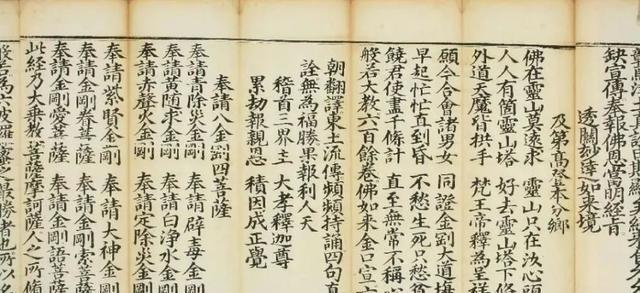 缺宣傳奉報佛恩當明經旨
透關妙達如来境
及第髙登本分鄉
佛在靈山莫遠求 靈山只在汝心頭
人人有箇靈山塔 好去靈山塔下修
外道天魔皆拱手 梵王帝釋為呈祥
願今合會諸男女 同證金剛大道場
早起忙忙直到昏 不愁生死只愁貧
饒君使盡千條計 直至無常不稱心
般若大教六百餘卷佛如来金口宣
朝翻譯東土流傳頻頻持誦四句真
詮無為福勝果報利人天
稽首三界主 大孝釋迦尊
累劫報親恩 積因成正覺
奉請八金剛四菩薩
奉請青除災金剛 奉請辟毒金剛
奉請黃随求金剛 奉請白淨水金剛
奉請赤聲火金剛 奉請定除災金剛
奉請紫賢金剛 奉請大神金剛
奉請金剛眷菩薩 奉請金剛索菩薩
奉請金剛愛菩薩 奉請金剛語菩薩
此經乃大乗教菩薩摩訶薩人之所脩
般若為六波羅蜜之最勝者也所以名